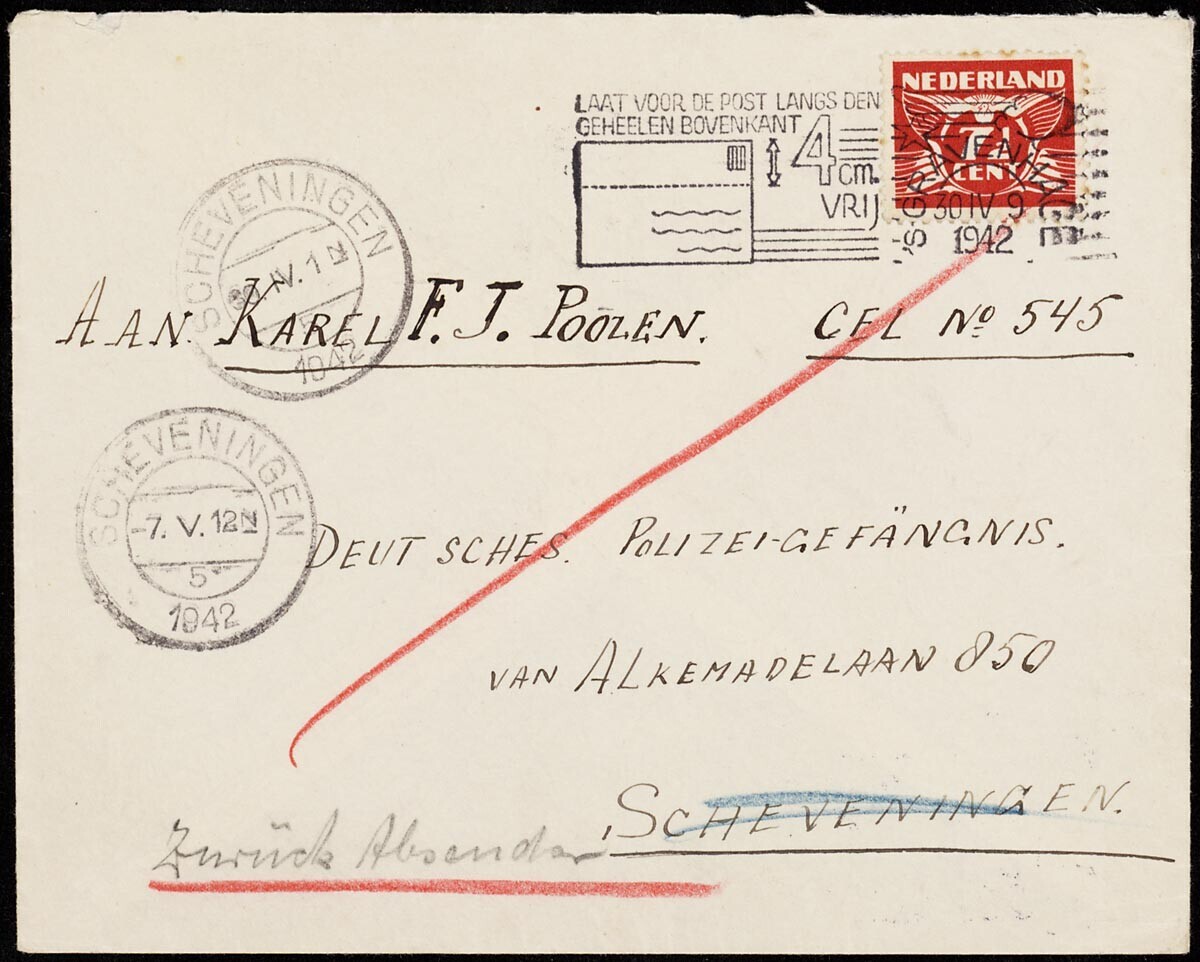 LAAT VOOR DE POST LANGS DEN
GEHEELEN BOVENKANT
4 cm.
VRIJ
NEDERLAND
7½
CENT
'S-GRAVENHAGE
30 IV 9
1942
SCHEVENINGEN
30.IV.1 N
1942
AAN. KAREL F. J. POOLEN. CEL Nº 545
SCHEVENINGEN
-7.V.12 N
5
1942
DEUTSCHES. POLIZEI-GEFÄNGNIS.
VAN ALKEMADELAAN 850
SCHEVENINGEN.
Zurück Absender